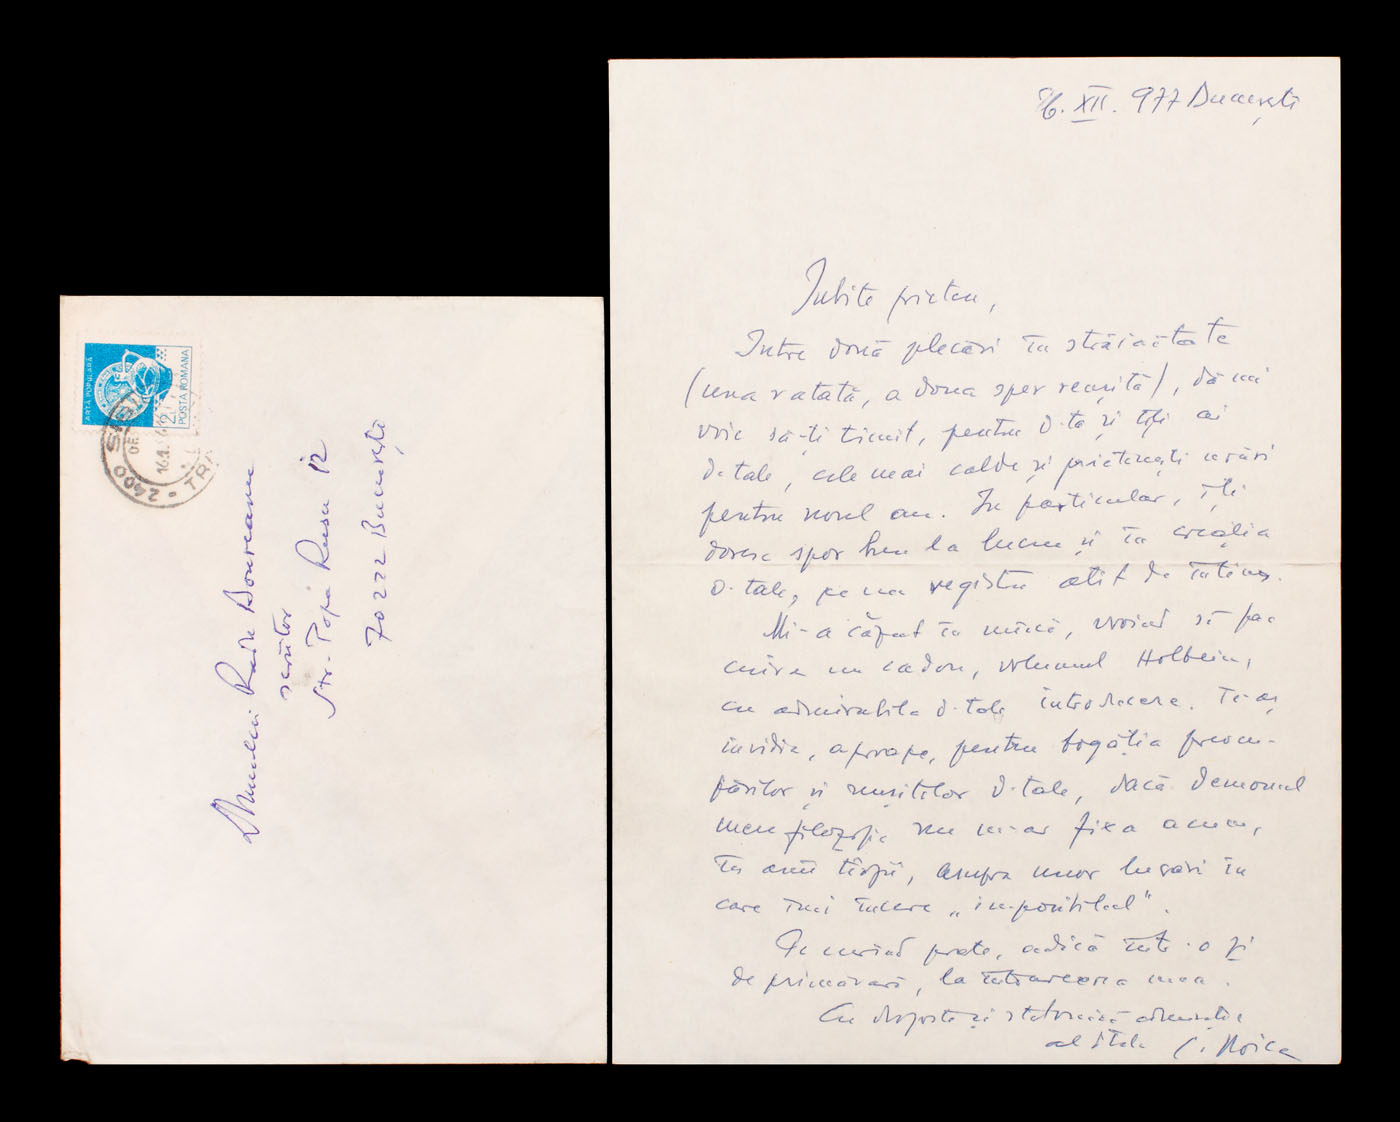 ARTĂ POPULARĂ
2L
POȘTA ROMÂNA
2400 SIBIU
TR
Domnului Radu Boureanu
scriitor
Str. Popa Rusu 12
70222 București
26. XII. 977 București
Iubite prieten,
Între două plecări în străinătate
(una ratată, a doua sper reușită), dă-mi
voie să-ți trimit, pentru d-ta și toți ai
d-tale, cele mai calde și prietenești urări
pentru noul an. In particular, îți
doresc spor bun la lucru și în creația
d-tale, pe un registru atît de întins.
Mi-a căzut în mînă, vroind să fac
cuiva un cadou, volumul Holbein,
cu admirabila d-tale introducere. Te-aș
invidia, aproape, pentru bogăția preocu-
părilor și reușitelor d-tale, dacă demonul
meu filozofic nu m-ar fixa acum,
în anii tîrzii, asupra unor lucrări în
care îmi încerc „imposibilul".
Pe curînd poate, adică într-o zi
de primăvară, la întoarcerea mea.
Cu dragoste și statornică admirație
al d-tale C. Noica